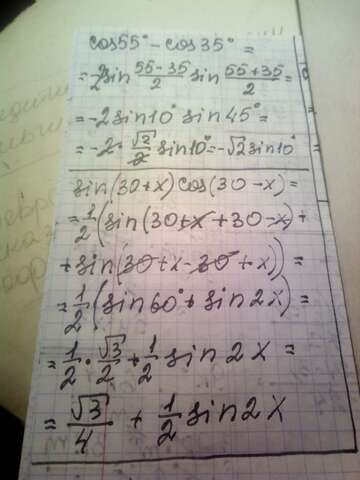 cos55° - cos35° =
= -2sin (55-35)/2 sin (55+35)/2 =
= -2sin10° sin45° =
= -2 · √2/2 sin10° = -√2 sin10°
sin(30+x)cos(30-x) =
= 1/2 (sin(30+x+30-x) +
+ sin(30+x-30+x)) =
= 1/2 (sin60° + sin2x) =
= 1/2 · √3/2 + 1/2 sin2x =
= √3/4 + 1/2 sin2x